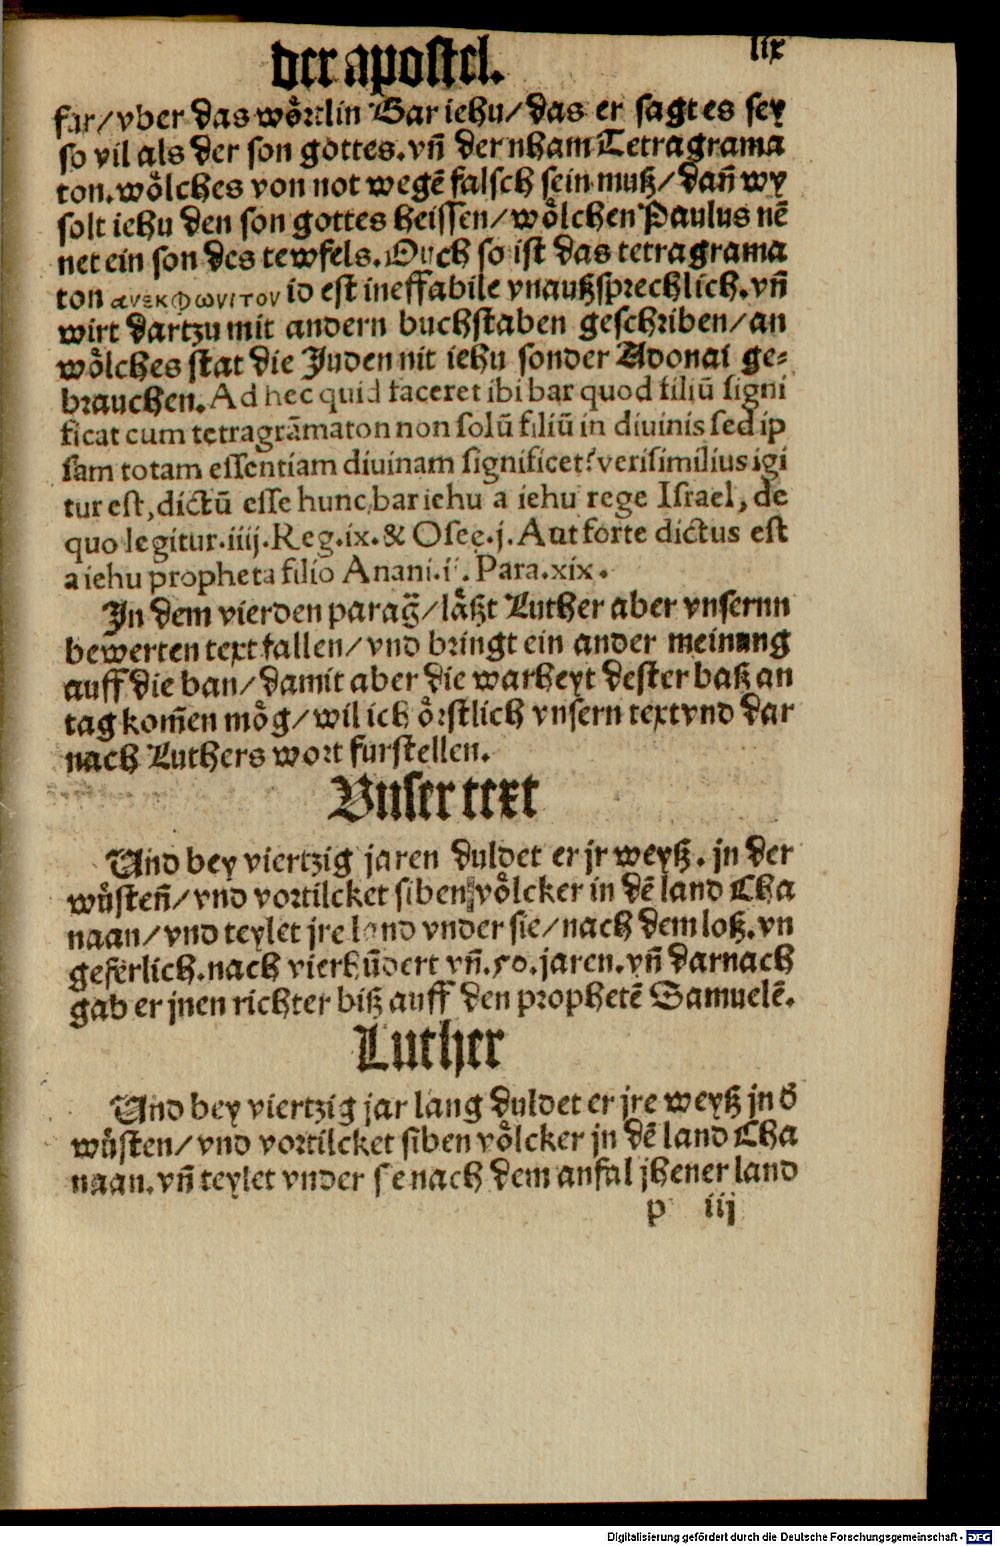 der apostel.
lix
fur/vber das wörtlin Bar iehu/das er sagt es sey
so vil als der son gottes.vñ der nham Tetragrama
ton.wölches von not wegē falsch sein muß/dañ wy
solt iehu den son gottes heissen/wölchen Paulus nē
net ein son des tewfels.Ouch so ist das tetragrama
ton ανεκφωνιτον id est ineffabile vnaußsprechlich.vñ
wirt dartzu mit andern buchstaben geschriben/an
wölches stat die Juden nit iehu sonder Adonai ge⸗
brauchen.Ad hec quid faceret ibi bar quod filiū signi
ficat cum tetragrāmaton non solū filiū in diuinis sed ip
sam totam essentiam diuinam significet? verisimilius igi
tur est,dictū esse hunc,bar iehu a iehu rege Israel, de
quo legitur.iiij.Reg.ix.& Oseę.j.Aut forte dictus est
a iehu propheta filio Anani.ij.Para.xix.
In dem vierden parag̃/läßt Luther aber vnsernn
bewerten text fallen/vnd bringt ein ander meinung
auff die ban/damit aber die warheyt dester baß an
tag kom̃en mög/wil ich örstlich vnsern text vnd dar
nach Luthers wort furstellen.
Vnser text
Vnd bey viertzig jaren duldet er jr weyß.jn der
wůsteñ/vnd vortilcket siben völcker in dē land Cha
naan/vnd teylet jre land vnder sie/nach dem loß.vn
geferlich.nach vierhūdert vñ.50.jaren.vñ darnach
gab er jnen richter biß auff den prophetē Samuelē.
Luther
Vnd bey viertzig jar lang duldet er jre weyß jn d̕
wůsten/vnd vortilcket siben völcker jn dē land Cha
naan.vñ teylet vnder sie nach dem anfal jhener land
p iij
Digitalisierung gefördert durch die Deutsche Forschungsgemeinschaft - DFG